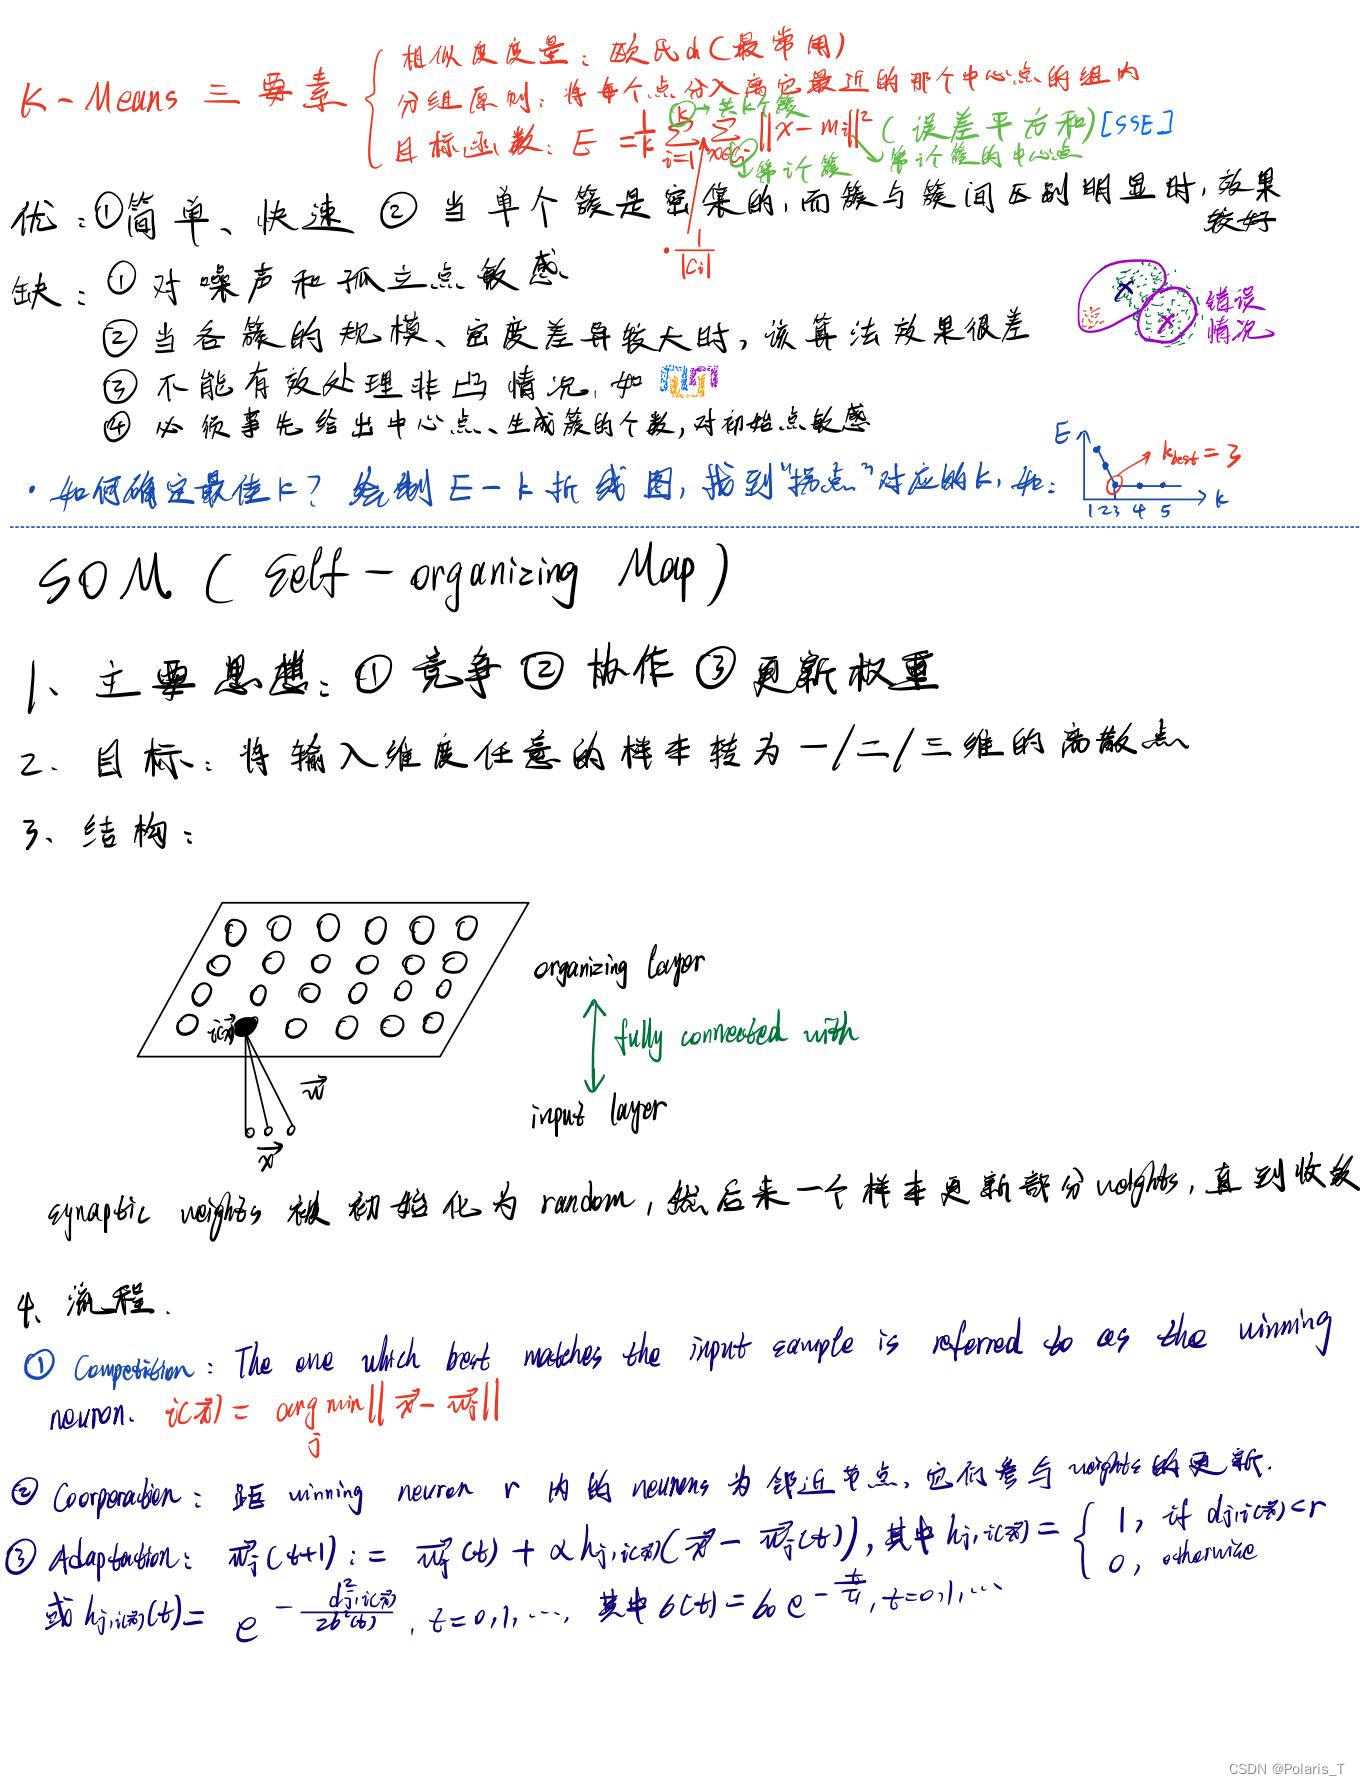 K-Means 三要素
相似度度量：欧氏d(最常用)
分组原则：将每个点分入离它最近的那个中心点的组内
→共k个簇
目标函数：E = 1/k ∑_{i=1}^{k} ∑_{x∈Ci} ||x-mi||² (误差平方和)[SSE]
第i个簇 第i个簇的中心点
优：①简单、快速 ② 当单个簇是密集的,而簇与簇间区别明显时,效果
较好
· 1/|Ci|
缺：① 对噪声和孤立点敏感、
错误
情况
② 当各簇的规模、密度差异较大时,该算法效果很差
③ 不能有效处理非凸情况,如
④ 必须事先给出中心点、生成簇的个数,对初始点敏感
· 如何确定最佳k? 绘制E-k折线图,找到"拐点"对应的k,如：
E
k_best = 3
k
1 2 3 4 5
SOM ( Self-organizing Map)
1、主要思想：① 竞争 ② 协作 ③ 更新权重
2. 目标：将输入维度任意的样本转为一/二/三维的离散点
3、结构：
organizing layer
i(x⃗)
fully connected with
w⃗
input layer
x⃗
synaptic weights 被初始化为random,然后来一个样本更新部分weights,直到收敛
4、流程.
① Competition: The one which best matches the input sample is referred to as the winning
neuron. i(x⃗) = arg min_j || x⃗ - w⃗j ||
② Coorperation: 距 winning neuron r 内的 neurons 为邻近节点、它们参与weights的更新.
③ Adaptation: w⃗j(t+1) := w⃗j(t) + α h_{j,i(x⃗)}(x⃗ - w⃗j(t)), 其中 h_{j,i(x⃗)} = { 1, if d_{j,i(x⃗)}<r
0, otherwise
或 h_{j,i(x⃗)}(t) = e^{-d²_{j,i(x⃗)}/2σ²(t)}, t=0,1,···, 其中 σ(t) = σ₀ e^{-t/τ₁}, t=0,1,···
CSDN @Polaris_T